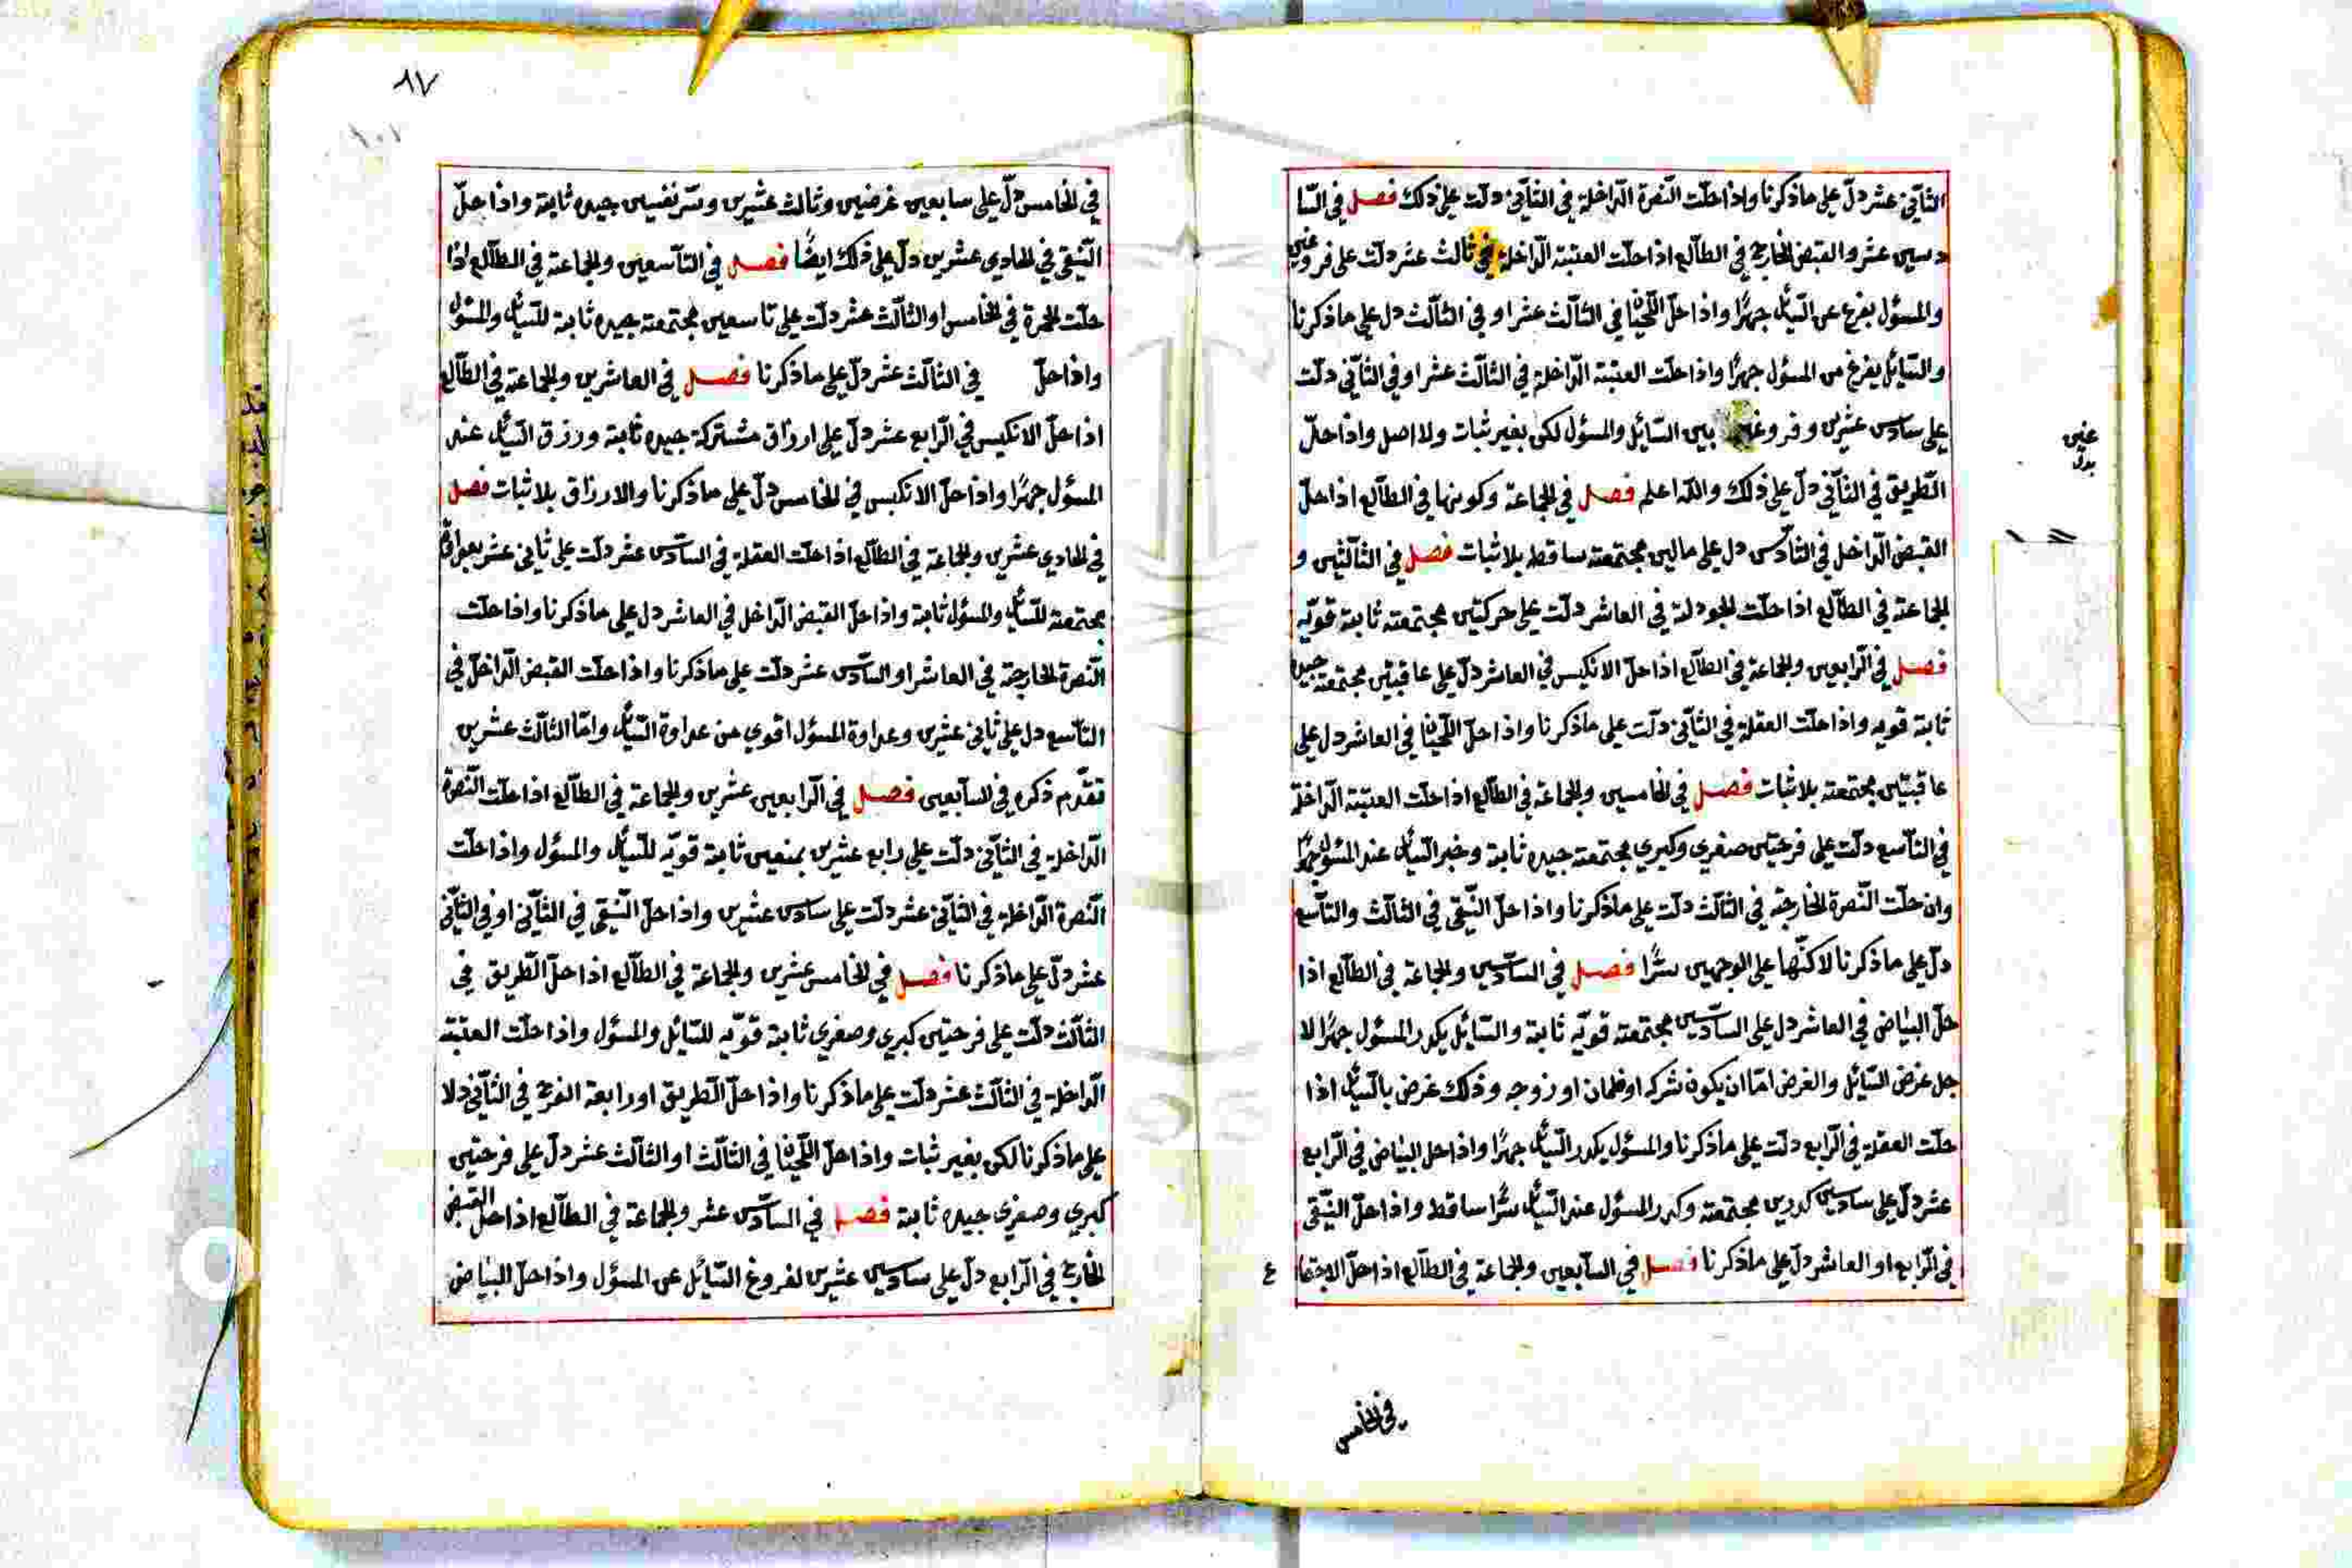 الثاني عشر دلّ على ما ذكرنا واذا حلّت النصرة الداخلة في الثاني دلّت على ذلك فصل في السا
دسين عشر والقبض الخارج في الطالع اذا حلّت العتبة الداخلة في ثالث عشر دلّت على فروغين
والمسؤل يفرغ عن السايل جهرًا واذا حلّ اللحيان في الثالث عشر او في الثالث دل على ما ذكرنا
والسايل يفرغ من المسؤل جهرًا واذا حلت العتبة الداخلة في الثالث عشر او في الثاني دلّت
على سادس عشرين وفروغين بين السائل والمسؤل لكن بغير ثبات ولا اصل واذا حلّ
الطريق في الثاني دلّ على ذلك والله اعلم فصل في الجماعة وكونها في الطالع اذا حلّ
القبض الداخل في السادس دل على مالين مجتمعة ساقط بلا ثبات فصل في الثالثين و
الجماعة في الطالع اذا حلت الجودلة في العاشر دلّت على حركتين مجتمعة ثابتة قويّه
فصل في الرابعين والجماعة في الطالع اذا حلّ الانكيس في العاشر دلّ على عاقبتين مجتمعة جيده
ثابتة قويه واذا حلت العقلة في الثاني دلّت على ما ذكرنا واذا حلّ اللحيان في العاشر دل على
عاقبتين مجتمعة بلا ثبات فصل في الخامسين والجماعة في الطالع اذا حلّت العتبة الداخلة
في التاسع دلّت على فرحتين صغري وكبري مجتمعة جيده ثابتة وخبر السايل عند المسؤل جهرًا
وان حلّت النصرة الخارجة في الثالث دلّت على ما ذكرنا واذا حلّ النّقي في الثالث والتاسع
دلّ على ما ذكرنا لاكنّها على الوجهين سرًّا فصل في السادسين والجماعة في الطالع اذا
حلّ البياض في العاشر دل على السادسين مجتمعة قويّه ثابتة والسائل يكدر المسؤل جهرًا لا
جل غرض السائل والغرض امّا ان يكون شركه او ضمان او زوجه وذلك غرض بالسايل اذا
حلّت العقلة في الرابع دلّت على ما ذكرنا والمسؤل يكدر السايل جهرًا واذا حل البياض في الرابع
عشر دلّ على سادسين كدرين مجتمعة وكدر المسؤل عند السايل سرًّا ساقط واذا حلّ النّقي
في الرابع او العاشر دلّ على ما ذكرنا فصل في السابعين والجماعة في الطالع اذا حلّ الاجتما ع
في الخامس
عين
بدل
٨٧
١٠١
في الخامس دلّ على سابعين غرضين وثالث عشرين وسر نفسين جيده ثابتة واذا حلّ
النّقي في الحادي عشرين دلّ على ذلك ايضًا فصل في التاسعين والجماعة في الطالع اذا
حلّت الحمرة في الخامس او الثالث عشر دلّت على تاسعين مجتمعة جيده ثابتة للسايل والمسؤل
واذا حلّ في الثالث عشر دلّ على ما ذكرنا فصل في العاشرين والجماعة في الطالع
اذا حلّ الانكيس في الرابع عشر دلّ على ارزاق مشتركة جيده ثابتة ورزق السايل عند
المسؤل جهرًا واذا حلّ الانكيس في الخامس دلّ على ما ذكرنا والارزاق بلا ثبات فصل
في الحادي عشرين والجماعة في الطالع اذا حلّت العقلة في السادس عشر دلّت على ثاني عشر بعداوة
مجتمعة للسايل والمسؤل ثابتة واذا حلّ القبض الداخل في العاشر دل على ما ذكرنا واذا حلّت
النصرة الخارجة في العاشر او السادس عشر دلّت على ما ذكرنا واذا حلّت القبض الداخل في
التاسع دل على ثاني عشرين وعداوة المسؤل اقوي من عداوة السايل وامّا الثالث عشرين
تقدّم ذكره في السابعين فصل في الرابعين عشرين والجماعة في الطالع اذا حلّت النصرة
الداخلة في الثاني دلّت على رابع عشرين بمنعين ثابتة قويّه للسايل والمسؤل واذا حلّت
النصرة الداخلة في الثاني عشر دلّت على سادس عشرين واذا حلّ النّقي في الثاني او في الثاني
عشر دلّ على ما ذكرنا فصل في الخامس عشرين والجماعة في الطالع اذا حلّ الطريق في
الثالث دلّت على فرحتين كبري وصغري ثابتة قويّه للسائل والمسؤل واذا حلّت العتبة
الداخلة في الثالث عشر دلّت على ما ذكرنا واذا حلّ الطريق او رابعة الفرح في الثاني دلا
على ما ذكرنا لكن بغير ثبات واذا حلّ اللحيان في الثالث او الثالث عشر دلّ على فرحتين
كبري وصغري جيده ثابتة فصل في السادس عشر والجماعة في الطالع اذا حل القبض
الخارج في الرابع دلّ على سادسين عشرين لفروغ السائل عن المسؤل واذا حلّ البياض